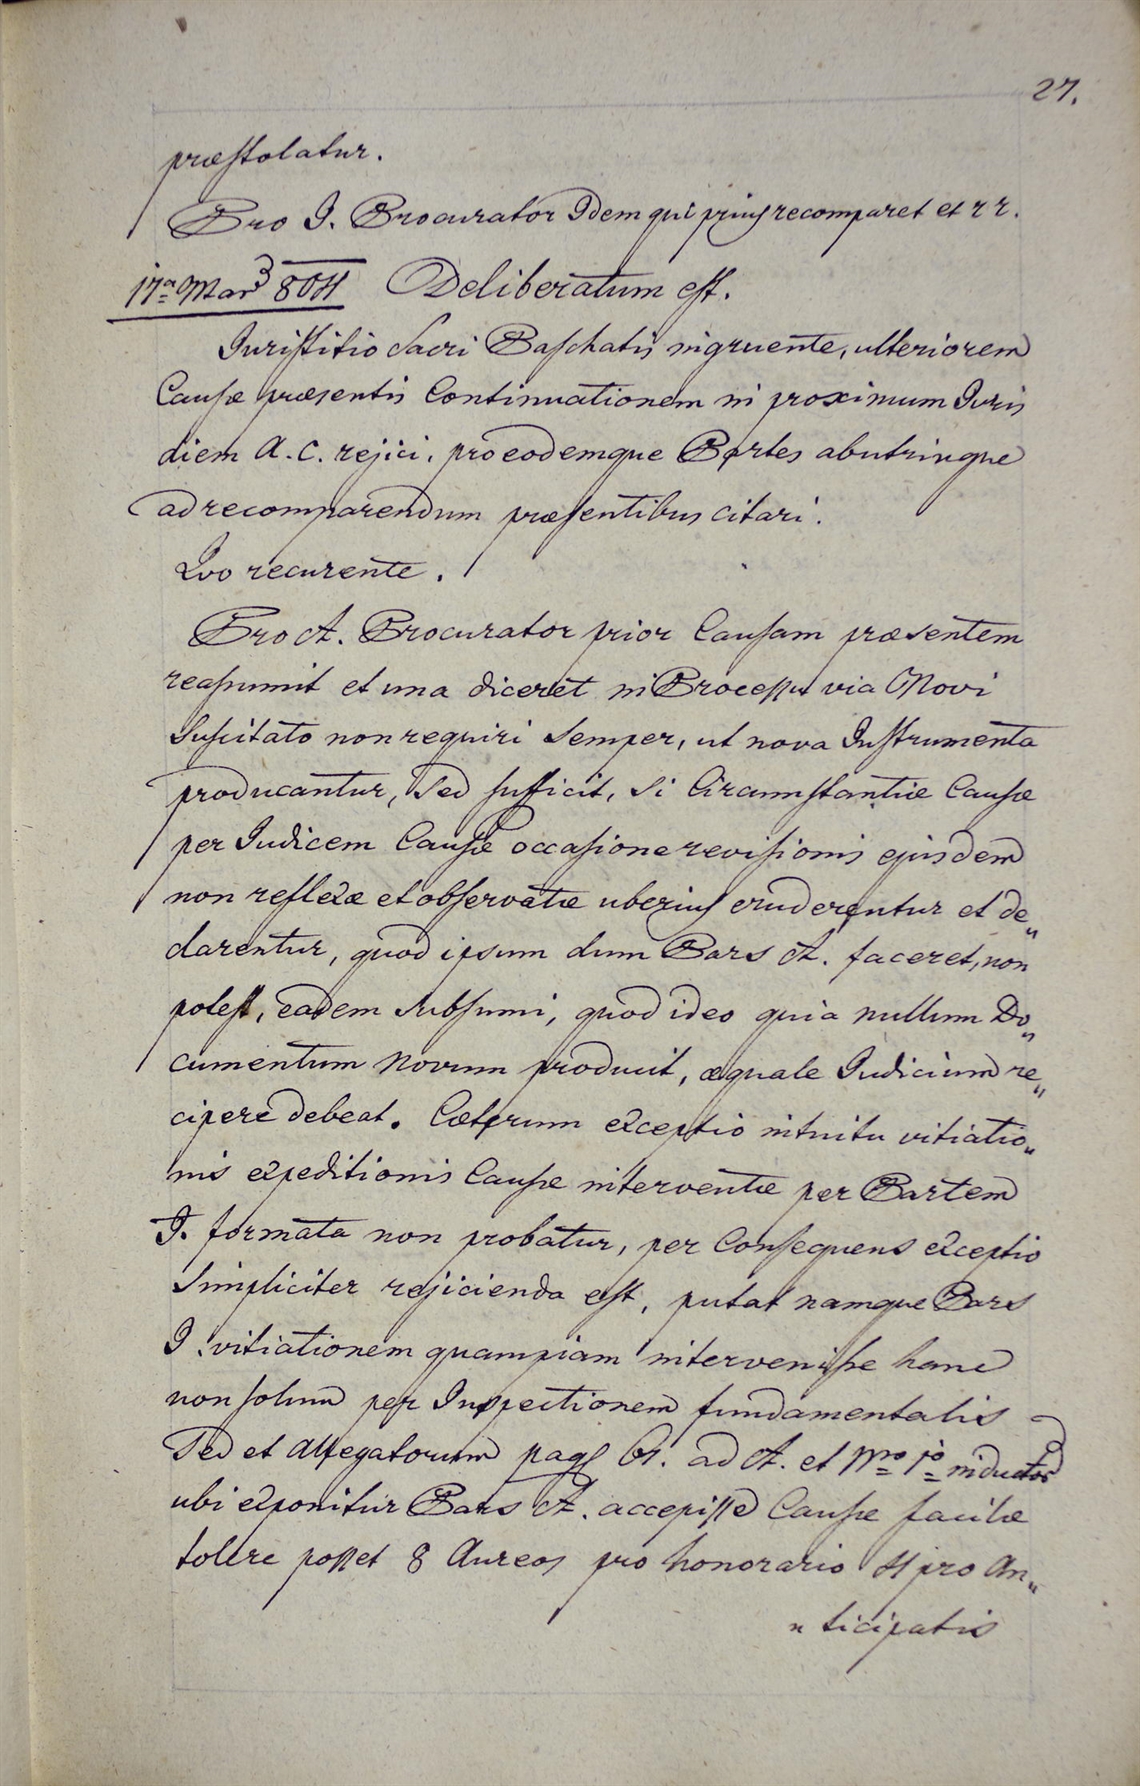 27.
præstolatur.
Pro I. Procurator Idem qui prius recomparet et rr.
17a Mar 804 Deliberatum est.
Juristitio Sacri Paschatis ingruente, ulteriorem
Causæ præsentis Continuationem in proximum Juris
diem A. C. rejici, pro eodemque Partes ab utrinque
ad recomparendum præsentibus citari.
Quo recurente.
Pro A. Procurator prior Causam præsentem
reassumit et una diceret in Processu via Novi
Suscitato non requiri Semper, ut nova Instrumenta
producantur, Sed sufficit, Si Circumstantiæ Causæ
per Judicem Causæ occasione revisionis ejusdem
non reflexæ et observatæ uberius eruderentur et de„
clarentur, quod ipsum dum Pars A. faceret, non
potest, eadem Subsumi, quod ideo quia nullum Do„
cumentum Novum producit, æquale Judicium re„
cipere debeat. Cæterum exceptio intuitu vitiatio„
nis expeditionis Causæ interventæ per Partem
I. formata non probatur, per Consequens exceptio
Simpliciter rejicienda est, putat namque Pars
I. vitiationem quampiam intervenisse hanc
non solum per Inspectionem fundamentalis
Sed et Allegatorum pag ad A. et inductor
ubi exponitur Pars A. accepisse Causæ facilæ
tolere posset 8 Aureos pro honorario 4 pro An„
„ticipatis